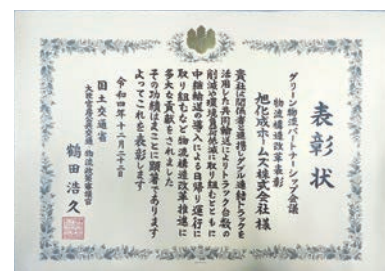 表彰状
グリーン物流パートナーシップ会議
物流構造改革表彰
旭化成ホームズ株式会社 様
貴社は関係者と連携しダブル連結トラックを
活用した共同輸送によりトラック台数の
削減や環境負荷低減に取り組むとともに
中継輸送の導入による日帰り運行に
取り組むなど物流構造改革推進に
多大な貢献をされました
その功績はまことに顕著であります
よってこれを表彰します
令和四年十二月二十三日
国土交通省
大臣官房公共交通・物流政策審議官
鶴田 浩久